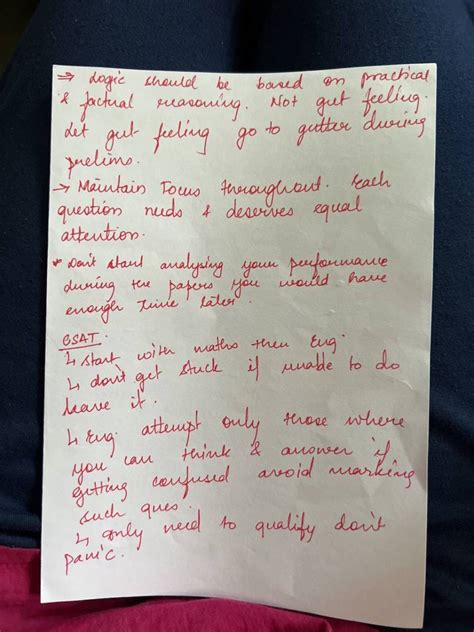 ⇒ Logic should be based on practical
& factual reasoning. Not gut feeling.
Let gut feeling go to gutter during
prelims.
→ Maintain Focus throughout. Each
question needs & deserves equal
attention.
* Don't start analysing your performance
during the papers you would have
enough time later.
CSAT.
↳ start with maths then Eng.
↳ don't get stuck if unable to do
leave it.
↳ Eng. attempt only those where
you can think & answer if
getting confused avoid marking
such ques.
↳ only need to qualify don't
panic.